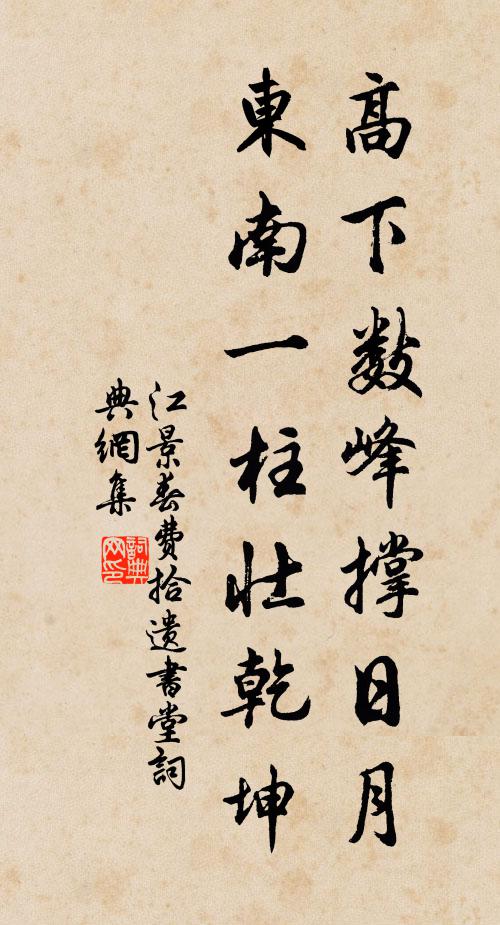 高下数峰撐日月
東南一柱壯乾坤
江景春費拾遺書堂詞
典網集
詞典
网印